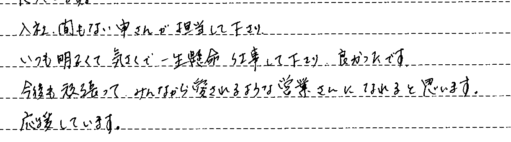 入社間もない申さんが担当して下さり
いつも明るくて気さくで一生懸命仕事して下さり 良かったです。
今後も頑張って みんなから愛されるような営業さんになれると思います。
応援しています。